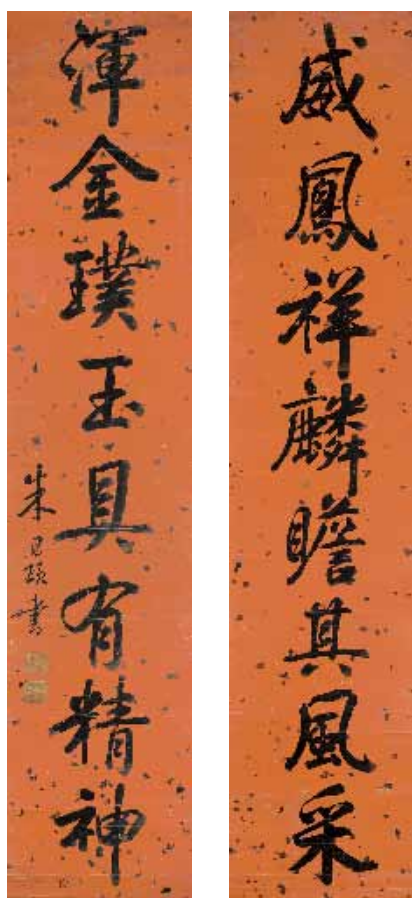 威鳳祥麟瞻其風采
渾金璞玉具有精神
朱 書